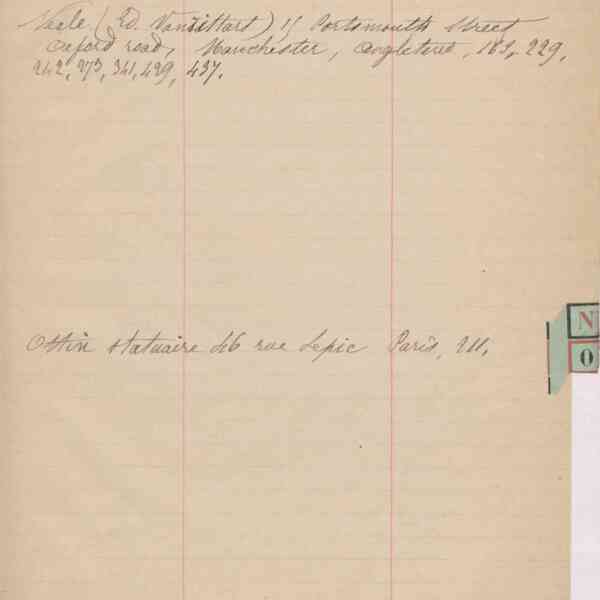 Neale (Ed. Vansittart) 15 Portsmouth Street
Oxford road, Manchester, Angleterre, 163, 229,
242, 273, 341, 429, 437.
Ottin statuaire 46 rue Lepic Paris, 211.
N
O